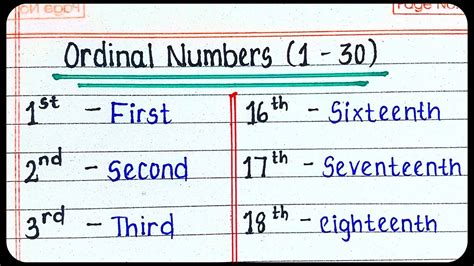 Page No.
Ordinal Numbers (1 - 30)
1st - First
2nd - Second
3rd - Third
16th - Sixteenth
17th - Seventeenth
18th - eighteenth